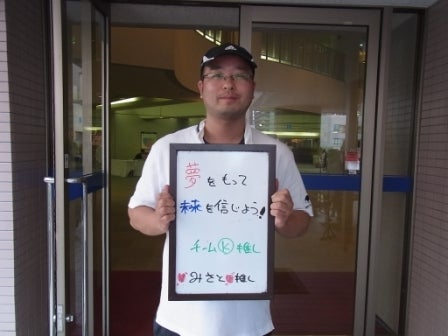 夢をもって
未来を信じよう!
チームⓀ推し
♥みさと♥推し